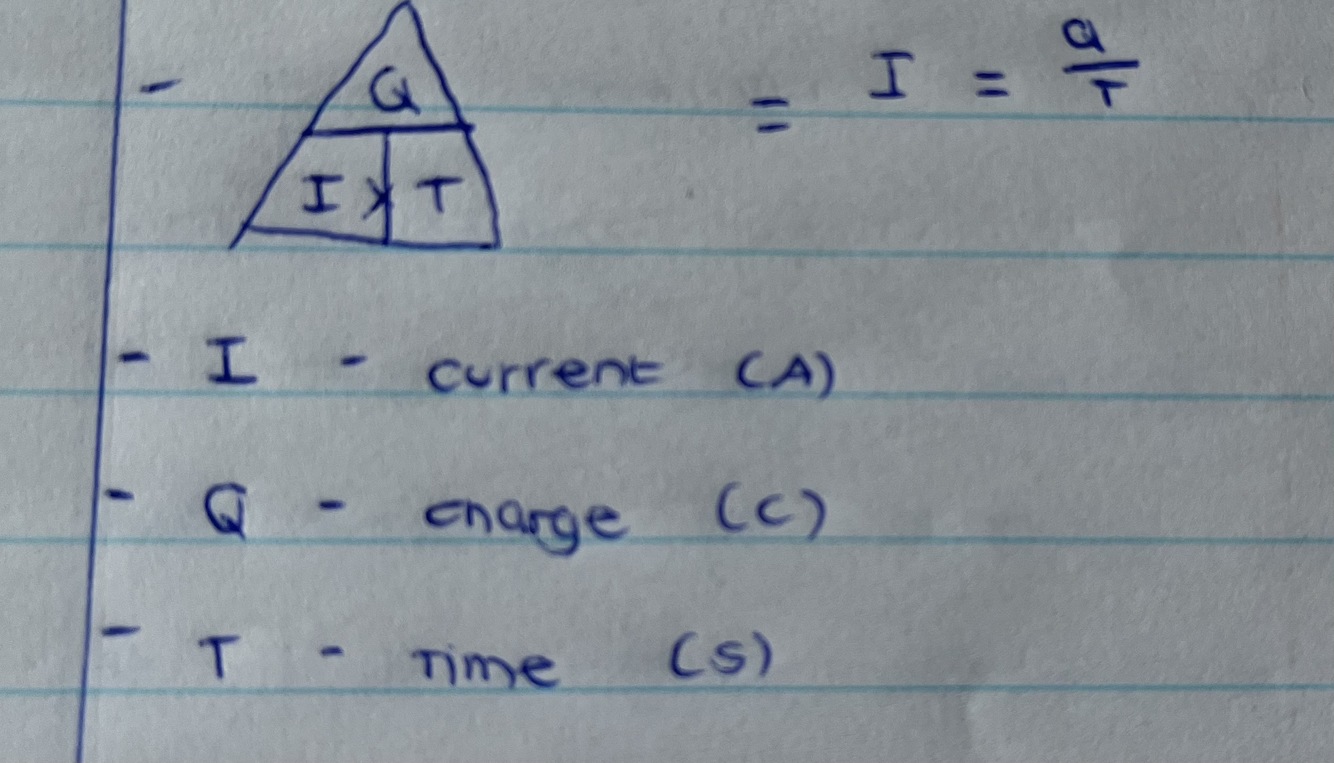 - Q = I = Q/T
I × T
- I - current (A)
- Q - charge (C)
- T - Time (S)